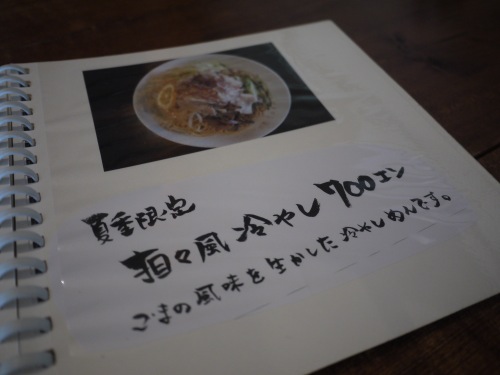 夏季限定
担々風冷やし 700エン
ごまの風味を生かした冷やしめんです。